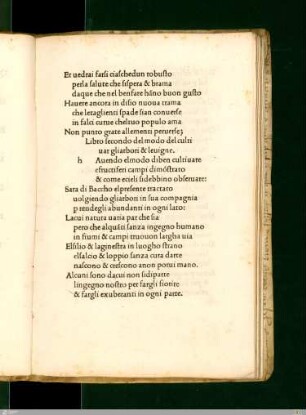 Et uedrai farsi ciaschedun robusto
perla salute che sispera & brama
daque che nel bensare hãno buon gusto
Hauere ancora in disio nuoua trama
che letaglienti spade sian conuerse
in falci curue chelsuo populo ama
Non punto grate allementi peruerse;
Libro secondo del modo del culti
uar gliarbori & leuigne.
h Auendo elmodo diben cultiuate
efructiferi campi dimõstrato
& come ecieli sidebbino obseruare:
Sara di Baccho elpresente tractato
uolgiendo gliarbori in sua compagnia
prendegli abundanti in ogni lato:
Lacui natura uaria par che sia
pero che alquãti sanza ingegno humano
in fiumi & campi truouon largha uia
Elsilio & laginestra in luogho strano
elsalcio & loppio sanza cura darte
nascono & crescono anon potui mano.
Alcuni sono dacui non sidiparte
lingegno nostro per fargli fiorite
& fargli exuberanti in ogni parte.